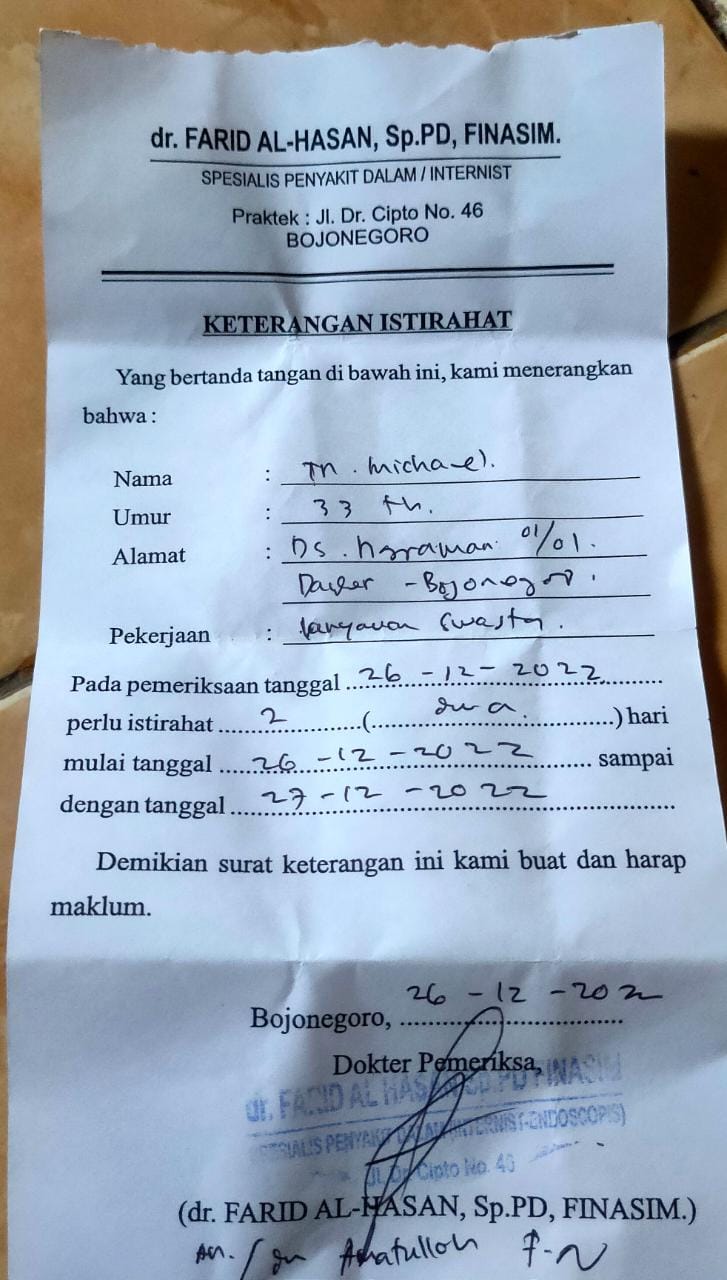 dr. FARID AL-HASAN, Sp.PD, FINASIM.
SPESIALIS PENYAKIT DALAM / INTERNIST
Praktek : Jl. Dr. Cipto No. 46
BOJONEGORO
KETERANGAN ISTIRAHAT
Yang bertanda tangan di bawah ini, kami menerangkan
bahwa :
Nama : Tn. Michael.
Umur : 33 th.
Alamat : Ds. Ngraman 01/01.
- Bojonegoro.
Pekerjaan : karyawan swasta.
Pada pemeriksaan tanggal 26 - 12 - 2022
perlu istirahat 2 (dua.) hari
mulai tanggal 26 - 12 - 2022 sampai
dengan tanggal 27 - 12 - 2022
Demikian surat keterangan ini kami buat dan harap
maklum.
Bojonegoro, 26 - 12 - 202
Dokter Pemeriksa,
dr. FARID AL HASAN, Sp.PD FINASIM
SPESIALIS PENYAKIT DALAM (INTERNIST-ENDOSCOPIS)
Jl. Dr. Cipto No. 46
(dr. FARID AL-HASAN, Sp.PD, FINASIM.)
An. / dr